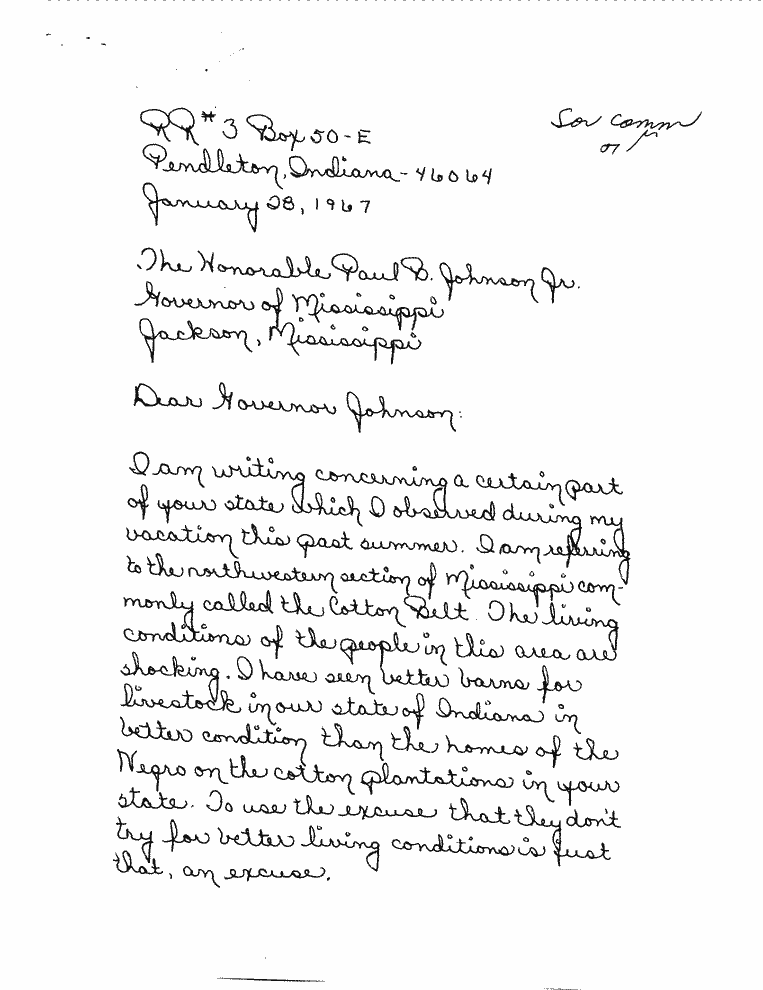 RR#3 Box 50-E
Sov Comm
Pendleton, Indiana-46064
January 28, 1967
The Honorable Paul B. Johnson Jr.
Governor of Mississippi
Jackson, Mississippi
Dear Governor Johnson:
I am writing concerning a certain part
of your state which I observed during my
vacation this past summer. I am refering
to the northwestern section of Mississippi com-
monly called the Cotton Belt. The living
conditions of the people in this area are
shocking. I have seen better barns for
livestock in our state of Indiana in
better condition than the homes of the
Negro on the cotton plantations in your
state. To use the excuse that they don't
try for better living conditions is just
that, an excuse.